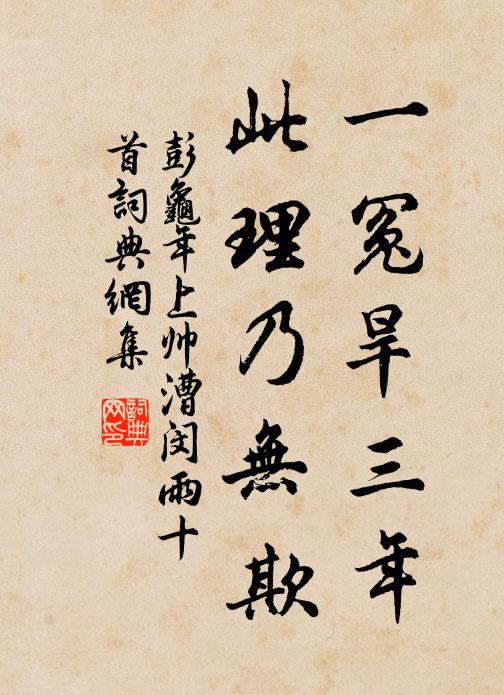 一冤旱三年
此理乃無欺
彭龜年上帅漕闵雨十
首詞典網集
詞典
网印